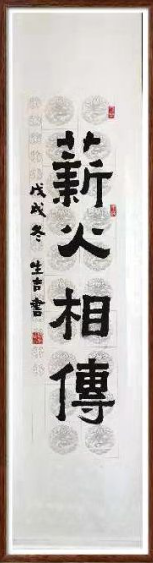 薪火相傳
戊戌冬 生吉書